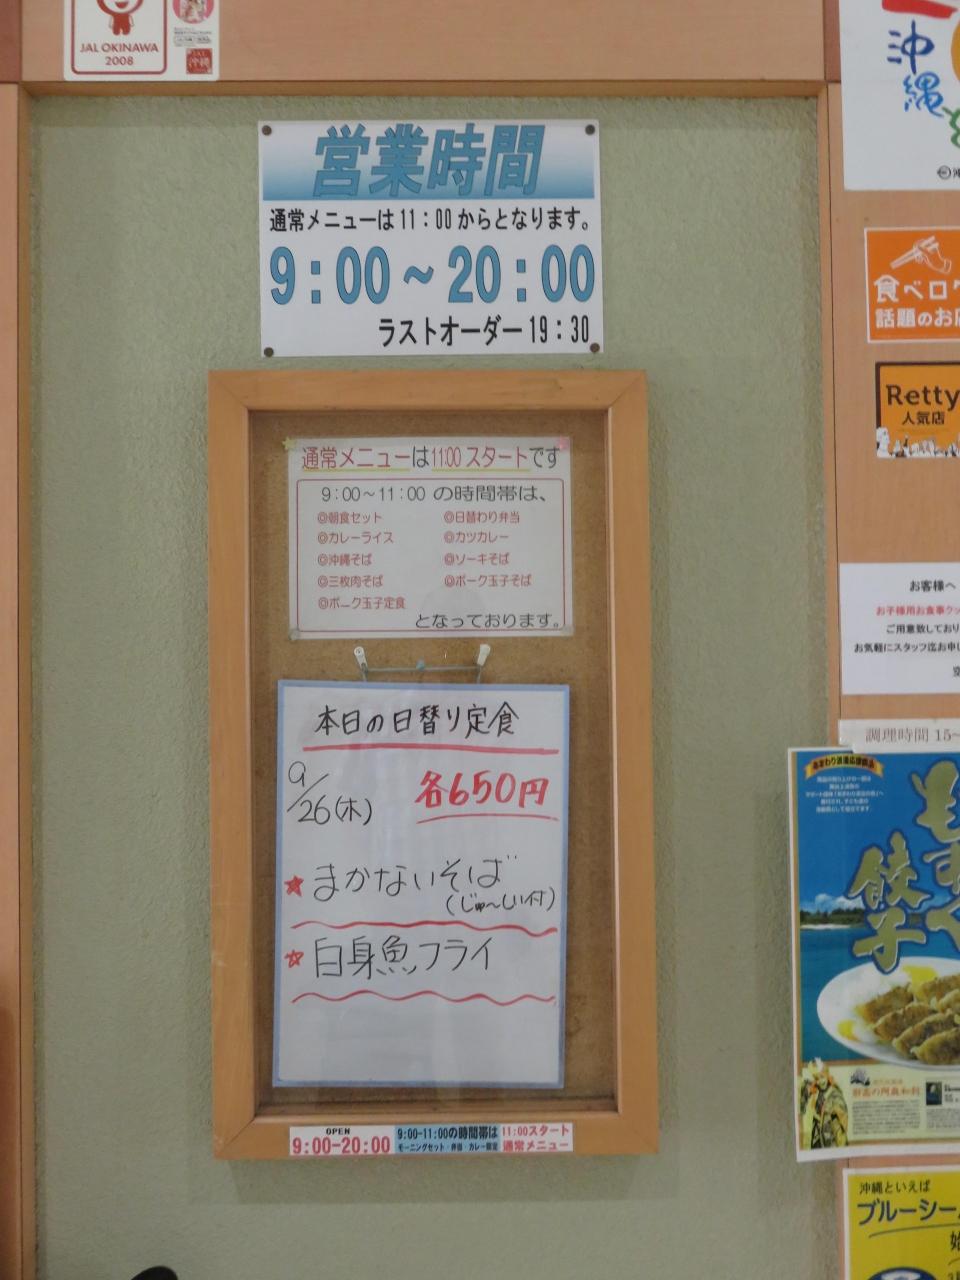 JAL OKINAWA
2008
沖縄
営業時間
通常メニューは11:00からとなります。
9:00～20:00
ラストオーダー19:30
通常メニューは11:00スタートです
9:00～11:00 の時間帯は、
◎朝食セット ◎日替わり弁当
◎カレーライス ◎カツカレー
◎沖縄そば ◎ソーキそば
◎三枚肉そば ◎ポーク玉子そば
◎ポーク玉子定食
となっております。
本日の日替り定食
9/26(木) 各650円
★まかないそば
(じゅ～しい付)
☆白身魚フライ
OPEN
9:00-20:00
9:00-11:00の時間帯は
モーニングセット・弁当・カレー限定
11:00スタート
通常メニュー
沖縄
食べログ
話題のお店
Retty
人気店
お客様へ
お子様用お食事クッ
ご用意致しており
お気軽にスタッフ迄お申し
調理時間 15～
餃子
沖縄といえば
ブルーシー